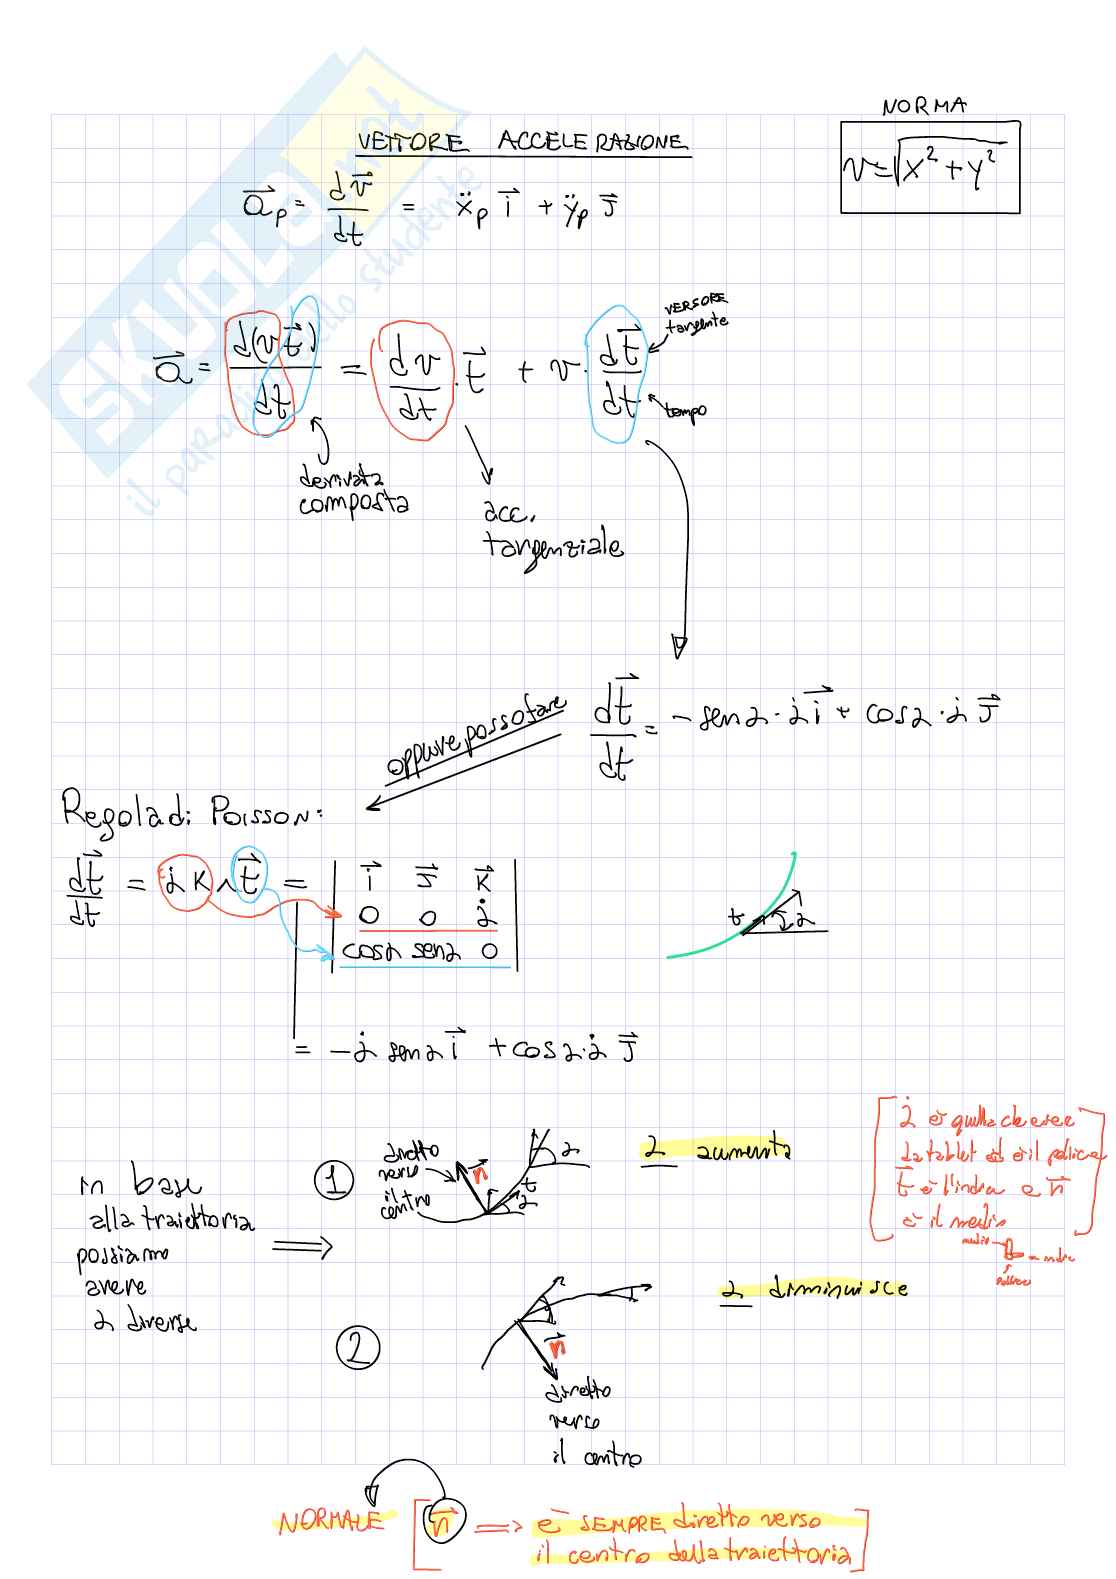 NORMA
v = √x² + y²
VETTORE ACCELERAZIONE
a⃗p = dv⃗/dt = ẍp i⃗ + ÿp j⃗
a⃗ = d(v t⃗)/dt = dv/dt · t⃗ + v · dt⃗/dt
VERSORE
tangente
tempo
derivata
composta
acc.
tangenziale
dt⃗/dt = - sen α · α̇ i⃗ + cos α · α̇ j⃗
oppure posso fare
Regola di Poisson:
dt⃗/dt = α̇ K ∧ t⃗ =
i⃗ j⃗ K⃗
0 0 α̇
cosα senα 0
t α
= - α̇ sen α i⃗ + cos α · α̇ j⃗
in base
alla traiettoria
possiamo
avere
α diverse
1
diretto
verso
il centro
n⃗
t
α
α
α aumenta
α̇ è quella che esce
da tablet ed è il pollice
t⃗ è l'indice e n⃗
è il medio
medio
indice
pollice
2
α diminuisce
n⃗
diretto
verso
il centro
NORMALE [ n⃗ ⇒ è SEMPRE diretto verso
il centro della traiettoria ]
SKUOLA.net
il paradiso dello studente